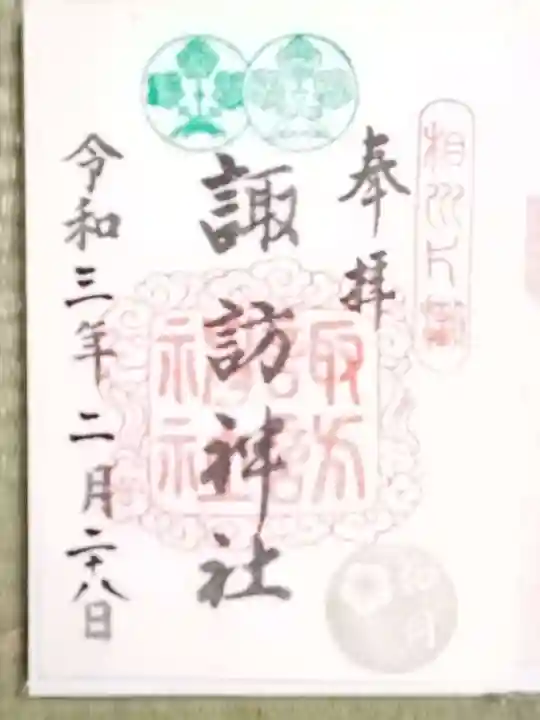 相州片瀬
奉拝
諏訪神社
諏訪神社
令和三年二月二十八日
如月